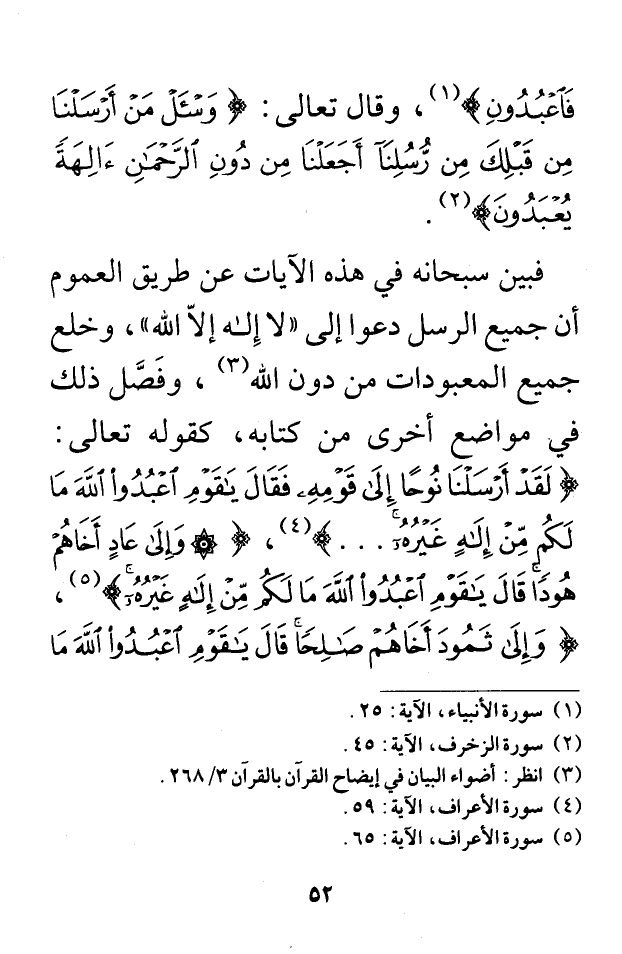 فَٱعۡبُدُونِ﴾(١)، وقال تعالى: ﴿وَسۡـَٔلۡ مَنۡ أَرۡسَلۡنَا
مِن قَبۡلِكَ مِن رُّسُلِنَآ أَجَعَلۡنَا مِن دُونِ ٱلرَّحۡمَٰنِ ءَالِهَةٗ
يُعۡبَدُونَ﴾(٢).
فبين سبحانه في هذه الآيات عن طريق العموم
أن جميع الرسل دعوا إلى «لا إِلـٰه إلاّ الله»، وخلع
جميع المعبودات من دون الله(٣)، وفَصَّل ذلك
في مواضع أخرى من كتابه، كقوله تعالى:
﴿لَقَدۡ أَرۡسَلۡنَا نُوحًا إِلَىٰ قَوۡمِهِۦ فَقَالَ يَٰقَوۡمِ ٱعۡبُدُواْ ٱللَّهَ مَا
لَكُم مِّنۡ إِلَٰهٍ غَيۡرُهُۥٓ...﴾(٤)، ﴿۞ وَإِلَىٰ عَادٍ أَخَاهُمۡ
هُودٗاۚ قَالَ يَٰقَوۡمِ ٱعۡبُدُواْ ٱللَّهَ مَا لَكُم مِّنۡ إِلَٰهٍ غَيۡرُهُۥٓۚ﴾(٥)،
﴿وَإِلَىٰ ثَمُودَ أَخَاهُمۡ صَٰلِحٗاۚ قَالَ يَٰقَوۡمِ ٱعۡبُدُواْ ٱللَّهَ مَا
(١) سورة الأنبياء، الآية: ٢٥.
(٢) سورة الزخرف، الآية: ٤٥.
(٣) انظر: أضواء البيان في إيضاح القرآن بالقرآن ٣/ ٢٦٨.
(٤) سورة الأعراف، الآية: ٥٩.
(٥) سورة الأعراف، الآية: ٦٥.
٥٢